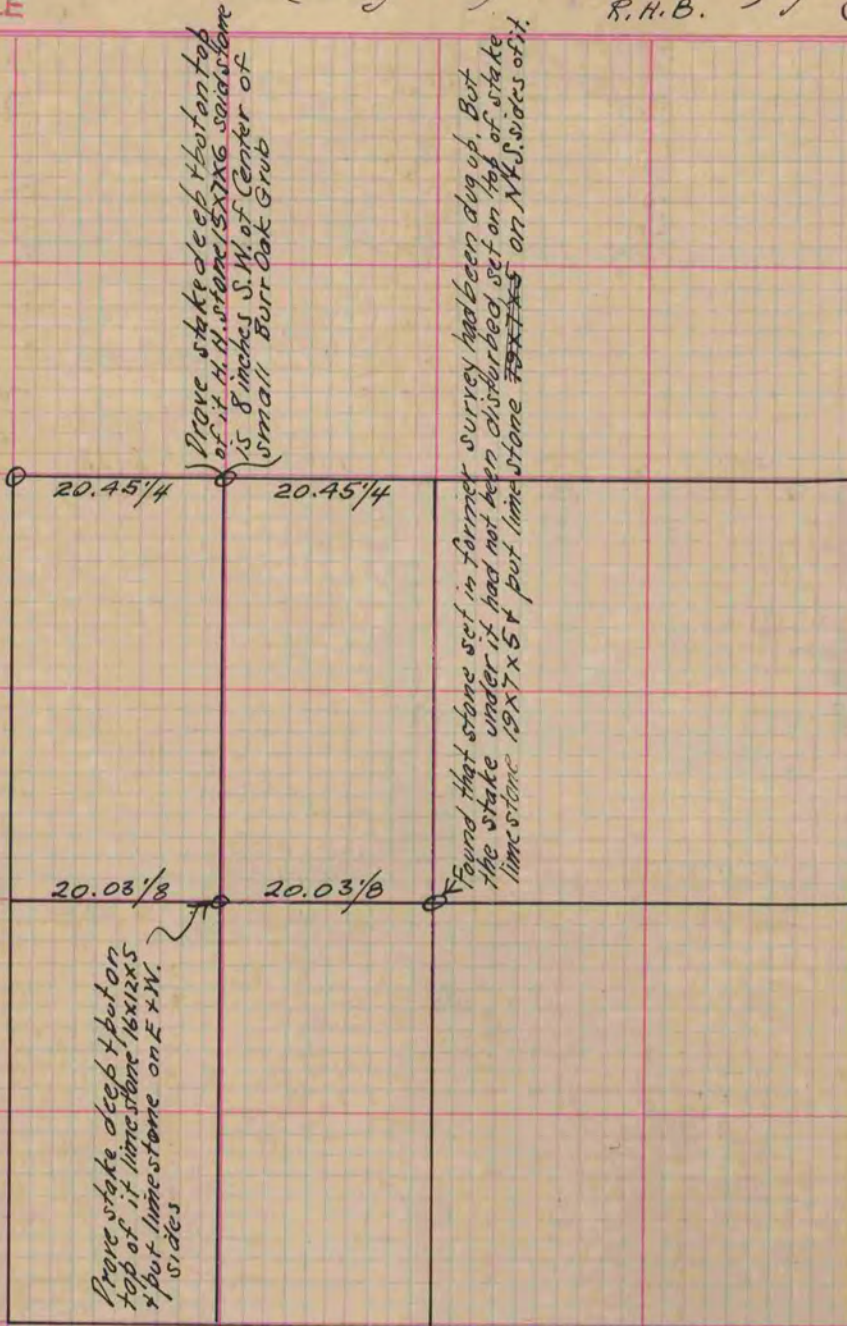 R.H.B.
Drove stake deep + put on top
of it H.H. stone 15x7x6 said stone
is 8 inches S.W. of Center of
small Burr Oak Grub
20.45 1/4
20.45 1/4
Found that stone set in former survey had been dug up. But
the stake under it had not been disturbed set on top of stake
limestone 19x7x5 + put limestone 19x7x5 on N+S. sides of it.
20.03 1/8
20.03 1/8
Drove stake deep + put on
top of it limestone 16x12x5
+ put limestone on E + W.
sides